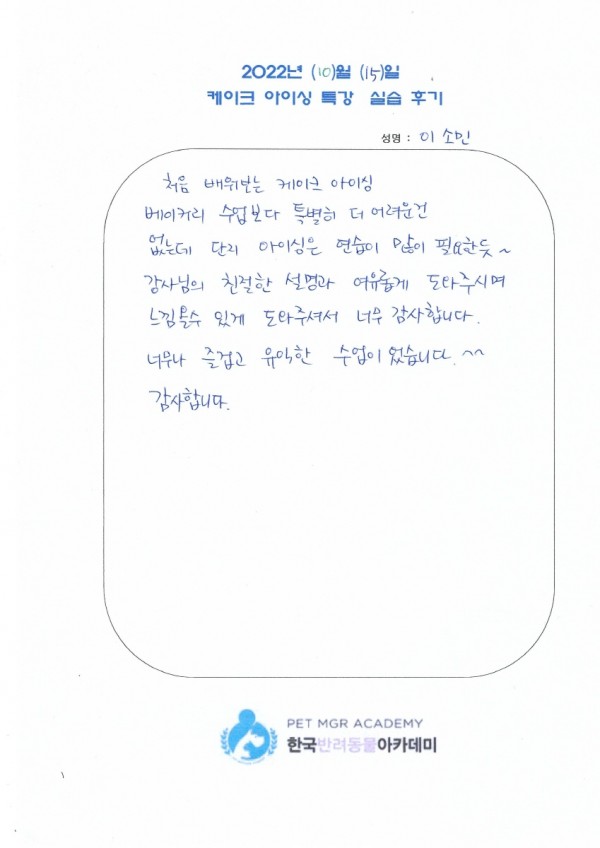 2022년 (10)월 (15)일
케이크 아이싱 특강 실습 후기
성명 : 이소민
처음 배워보는 케이크 아이싱
베이커리 수업보다 특별히 더 어려운건
없는데 단지 아이싱은 연습이 많이 필요한듯~
강사님의 친절한 설명과 여유롭게 도와주시며
느낌을수 있게 도와주셔서 너무 감사합니다.
너무나 즐겁고 유익한 수업이었습니다. ^^
감사합니다.
PET MGR ACADEMY
한국반려동물아카데미